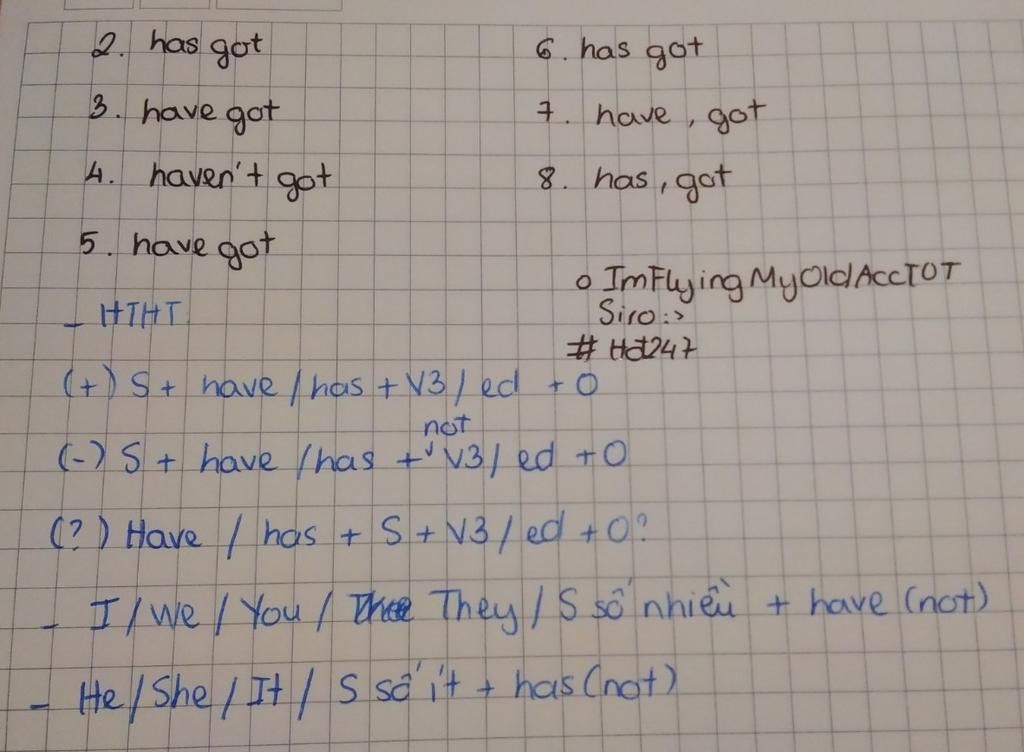 2. has got
3. have got
4. haven't got
5. have got
6. has got
7. have, got
8. has, got
o ImFlyingMyOldAccTOT
Siro:>
# Hd247
- HTHT
(+) S + have / has + V3 / ed + O
not
(-) S + have / has + √ V3 / ed + O
(?) Have / has + S + V3 / ed + O?
- I / We / You / They / S số nhiều + have (not)
- He / She / It / S số ít + has (not)